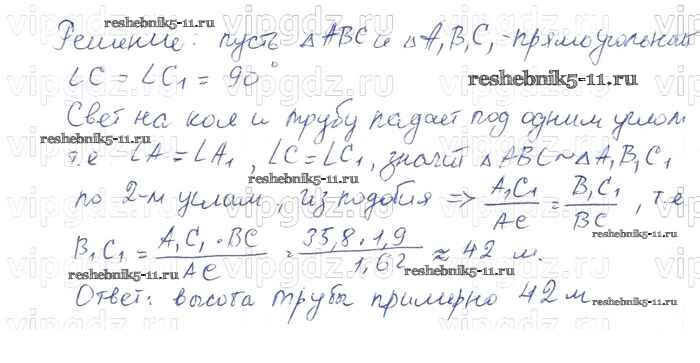 reshebnik5-11.ru
Решение: пусть △ABC и △A₁B₁C₁ - прямоугольные
∠C = ∠C₁ = 90°
reshebnik5-11.ru
Свет на кол и трубу падает под одним углом
reshebnik5-11.ru
т.е ∠A = ∠A₁, ∠C = ∠C₁, значит △ABC ~ △A₁B₁C₁
reshebnik5-11.ru
по 2-м углам, из подобия => A₁C₁/AC = B₁C₁/BC, т.е
reshebnik5-11.ru
B₁C₁ = A₁C₁·BC/AC = 35,8·1,9/1,62 ≈ 42 м.
reshebnik5-11.ru
reshebnik5-11.ru
Ответ: высота трубы примерно 42 м
reshebnik5-11.ru